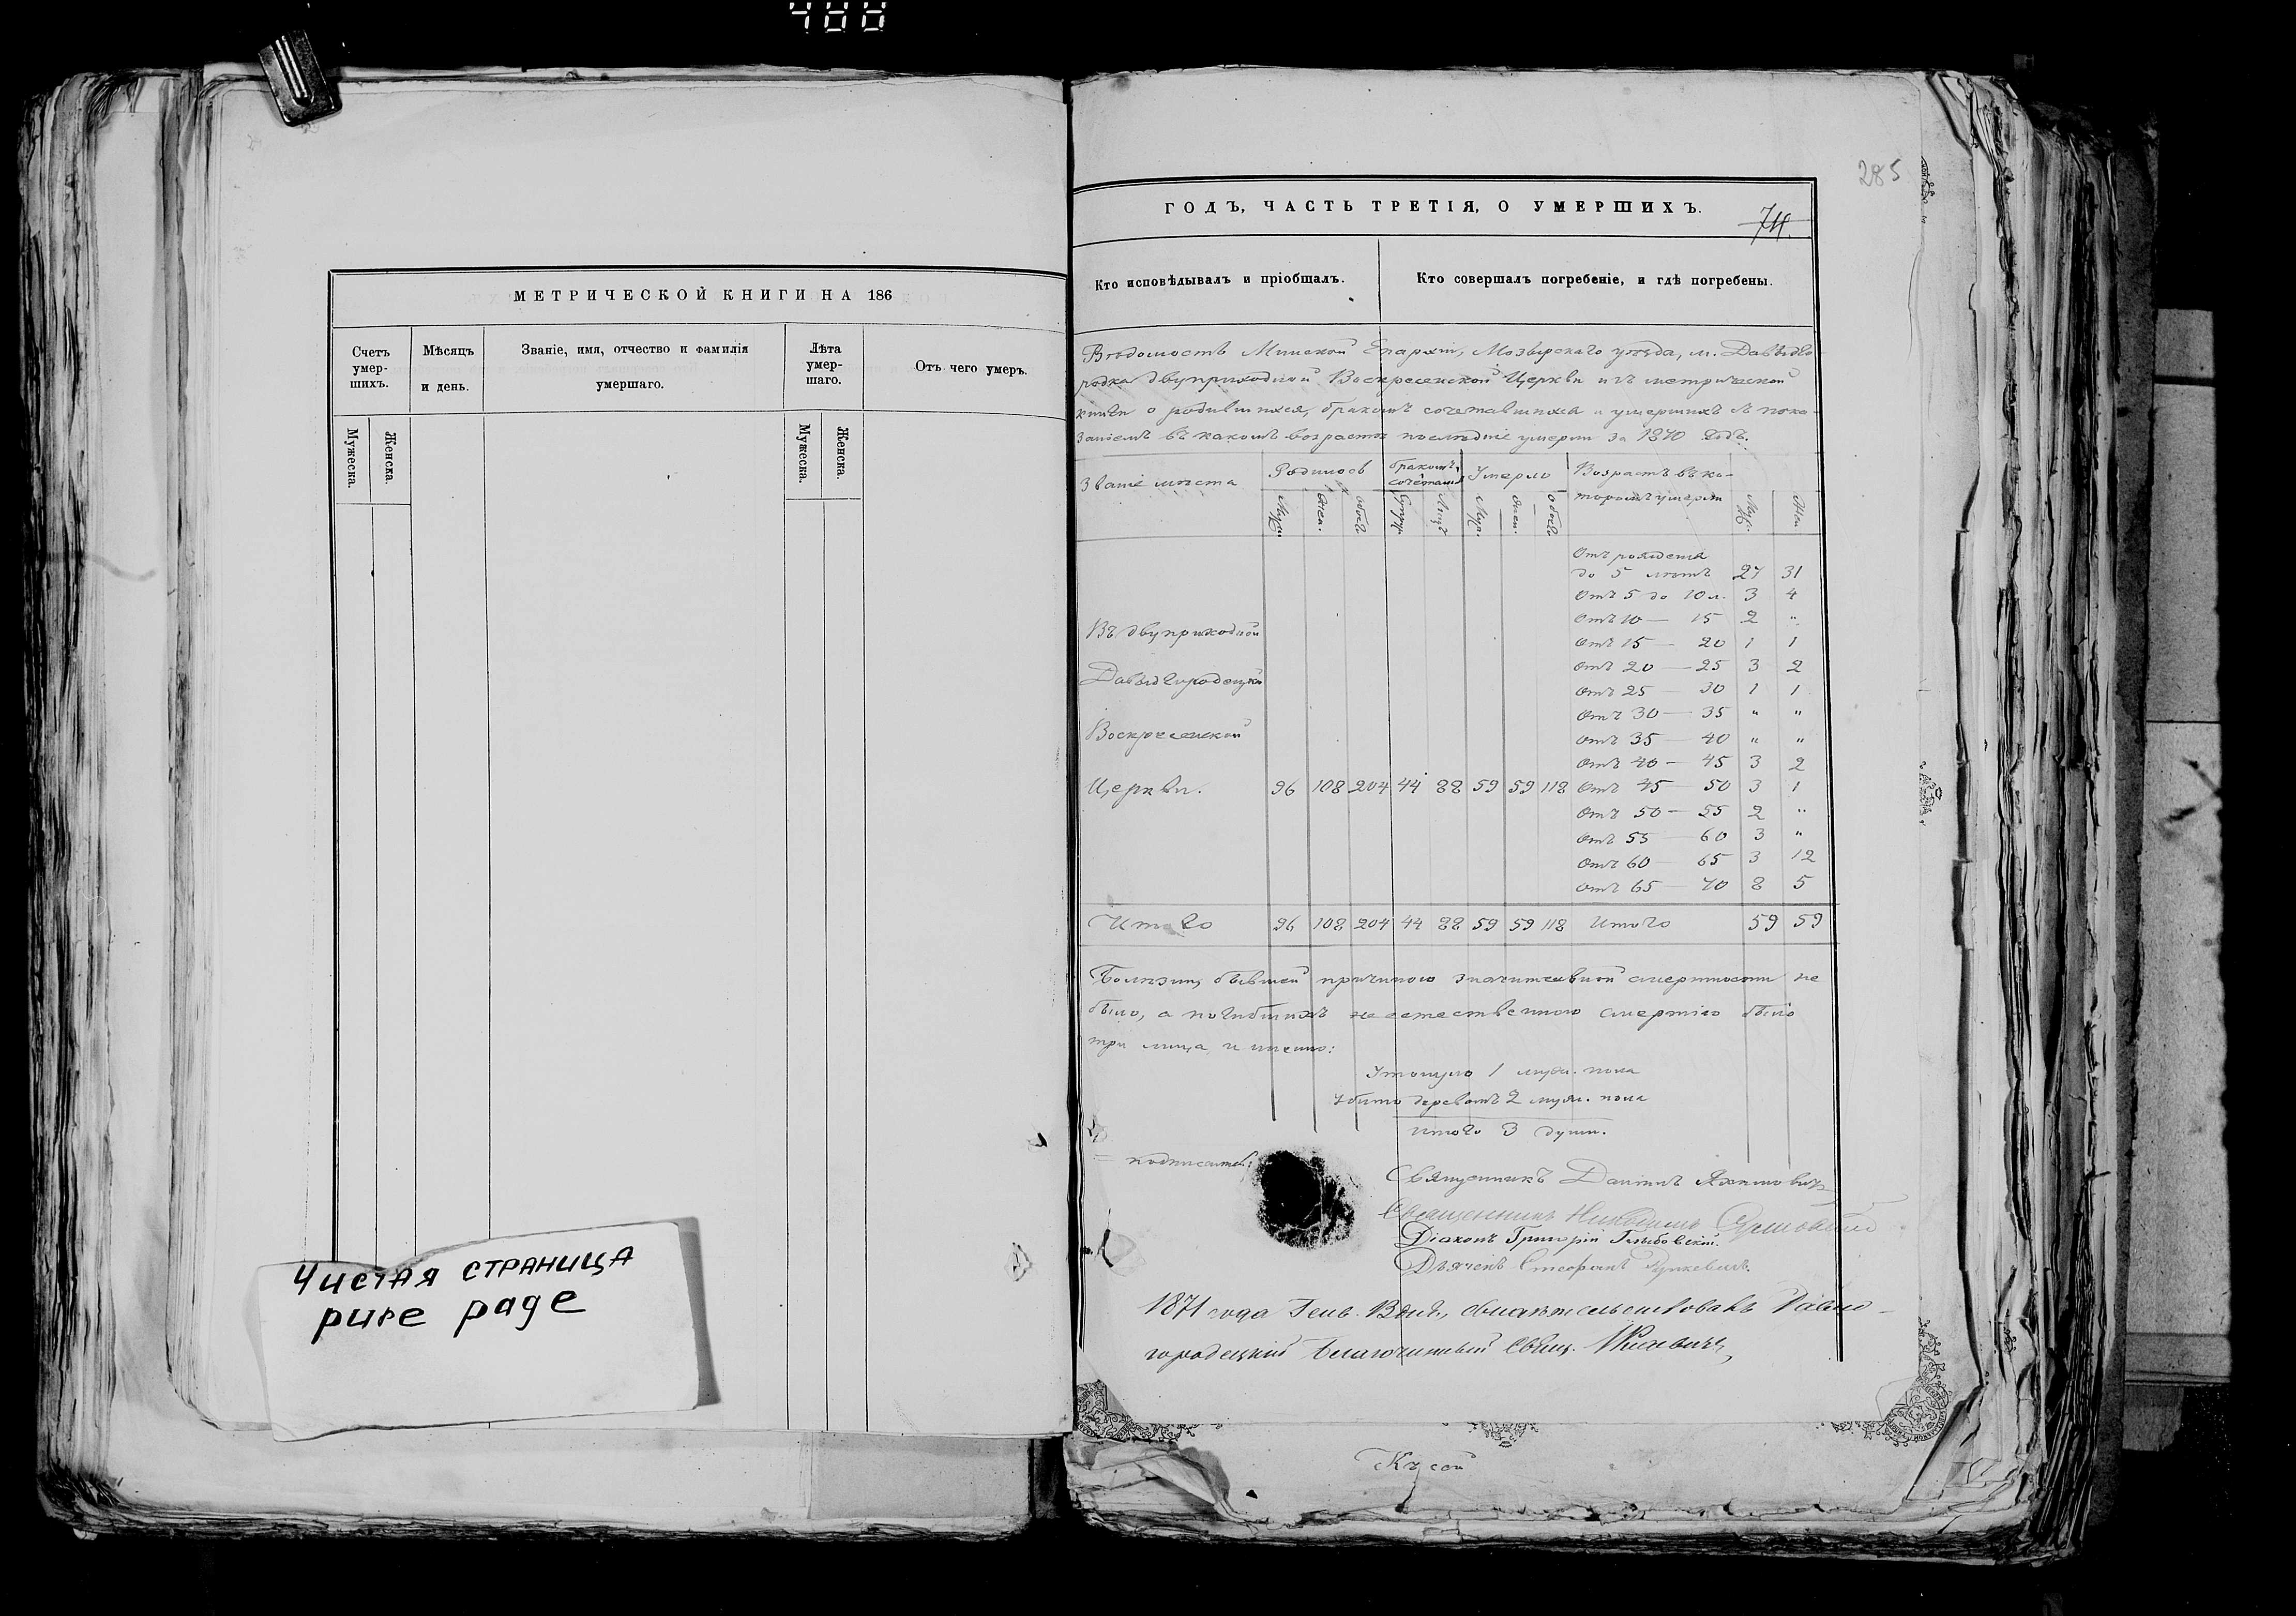 488
МЕТРИЧЕСКОЙ КНИГИ НА 186
Счетъ умер-шихъ.
Мѣсяцъ и день.
Званіе, имя, отчество и фамилія умершаго.
Лѣта умер-шаго.
Отъ чего умеръ.
Мужеска.
Женска.
Мужеска.
Женска.
Чистая страница
pure page
285
ГОДЪ, ЧАСТЬ ТРЕТІЯ, О УМЕРШИХЪ.
74.
Кто исповѣдывалъ и пріобщалъ.
Кто совершалъ погребеніе, и гдѣ погребены.
Вѣдомость Минской Епархіи, Мозырскаго уѣзда, м. Давыдго-
родка двуприходной Воскресенской Церкви изъ метрической
книги о родившихся, бракомъ сочетавшихся и умершихъ съ пока-
заніемъ въ какомъ возрастѣ послѣдніе умерли за 1870 годъ.
Званіе мѣста
Родилось
бракомъ сочетано
Умерло
Возрастъ въ ко-
торомъ умерли
Муж.
Жен.
Муж.
Жен.
Обоего
Муж.
Жен.
Отъ рожденія
до 5 лѣтъ 27 31
Отъ 5 до 10 л. 3 4
Отъ 10 — 15 2 "
Въ двуприходной
Отъ 15 — 20 1 1
Отъ 20 — 25 3 2
Давыдгородецкой
Отъ 25 30 1 1
Отъ 30 — 35 " "
Воскресенской
Отъ 35 40 " "
Отъ 40 — 45 3 2
Церкви. 96 108 204 44 88 59 59 118 Отъ 45 50 3 1
Отъ 50 — 55 2 "
Отъ 55 60 3 "
Отъ 60 65 3 12
Отъ 65 70 8 5
Итого 96 108 204 44 88 59 59 118 Итого 59 59
Болѣзни, бывшей причиною значительной смертности не
было, а погибшихъ неестественною смертію было
три лица, и именно:
Утонуло 1 муж. пола
Убито деревомъ 2 муж. пола
Итого 3 души.
подписались:
Священникъ Даніилъ Яхимовичъ
Священникъ Никодимъ
Діаконъ Григорій
Дьячекъ Стефанъ
1871 года Генв. свидѣтельствовалъ Давид-
городецкій Благочинный Свящ.
Къ сей